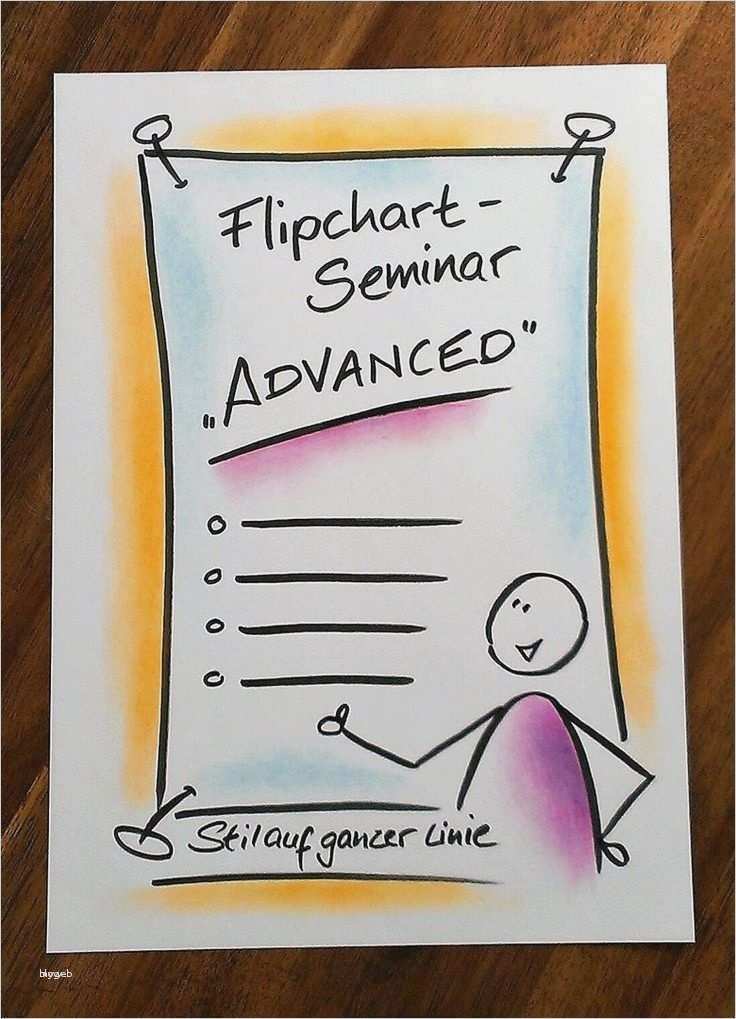 Flipchart-
Seminar
„ADVANCED"
Stil auf ganzer Linie